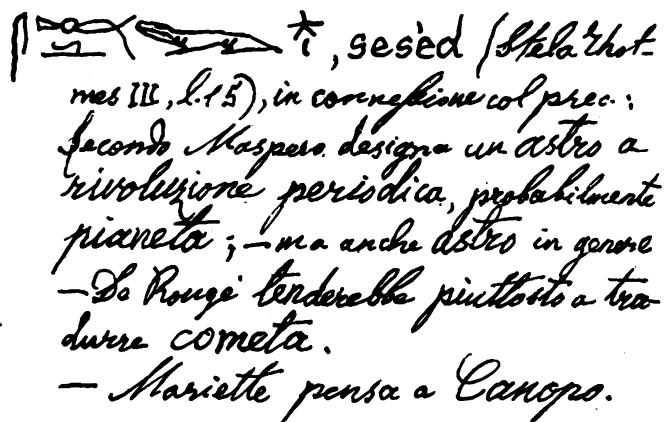 , seśed (Stela Thot-
mes III, l. 15), in connessione col prec.:
Secondo Maspero designa un astro a
rivoluzione periodica, probabilmente
pianeta; — ma anche astro in genere
— De Rougé tenderebbe piuttosto a tra-
durre cometa.
— Mariette pensa a Canopo.